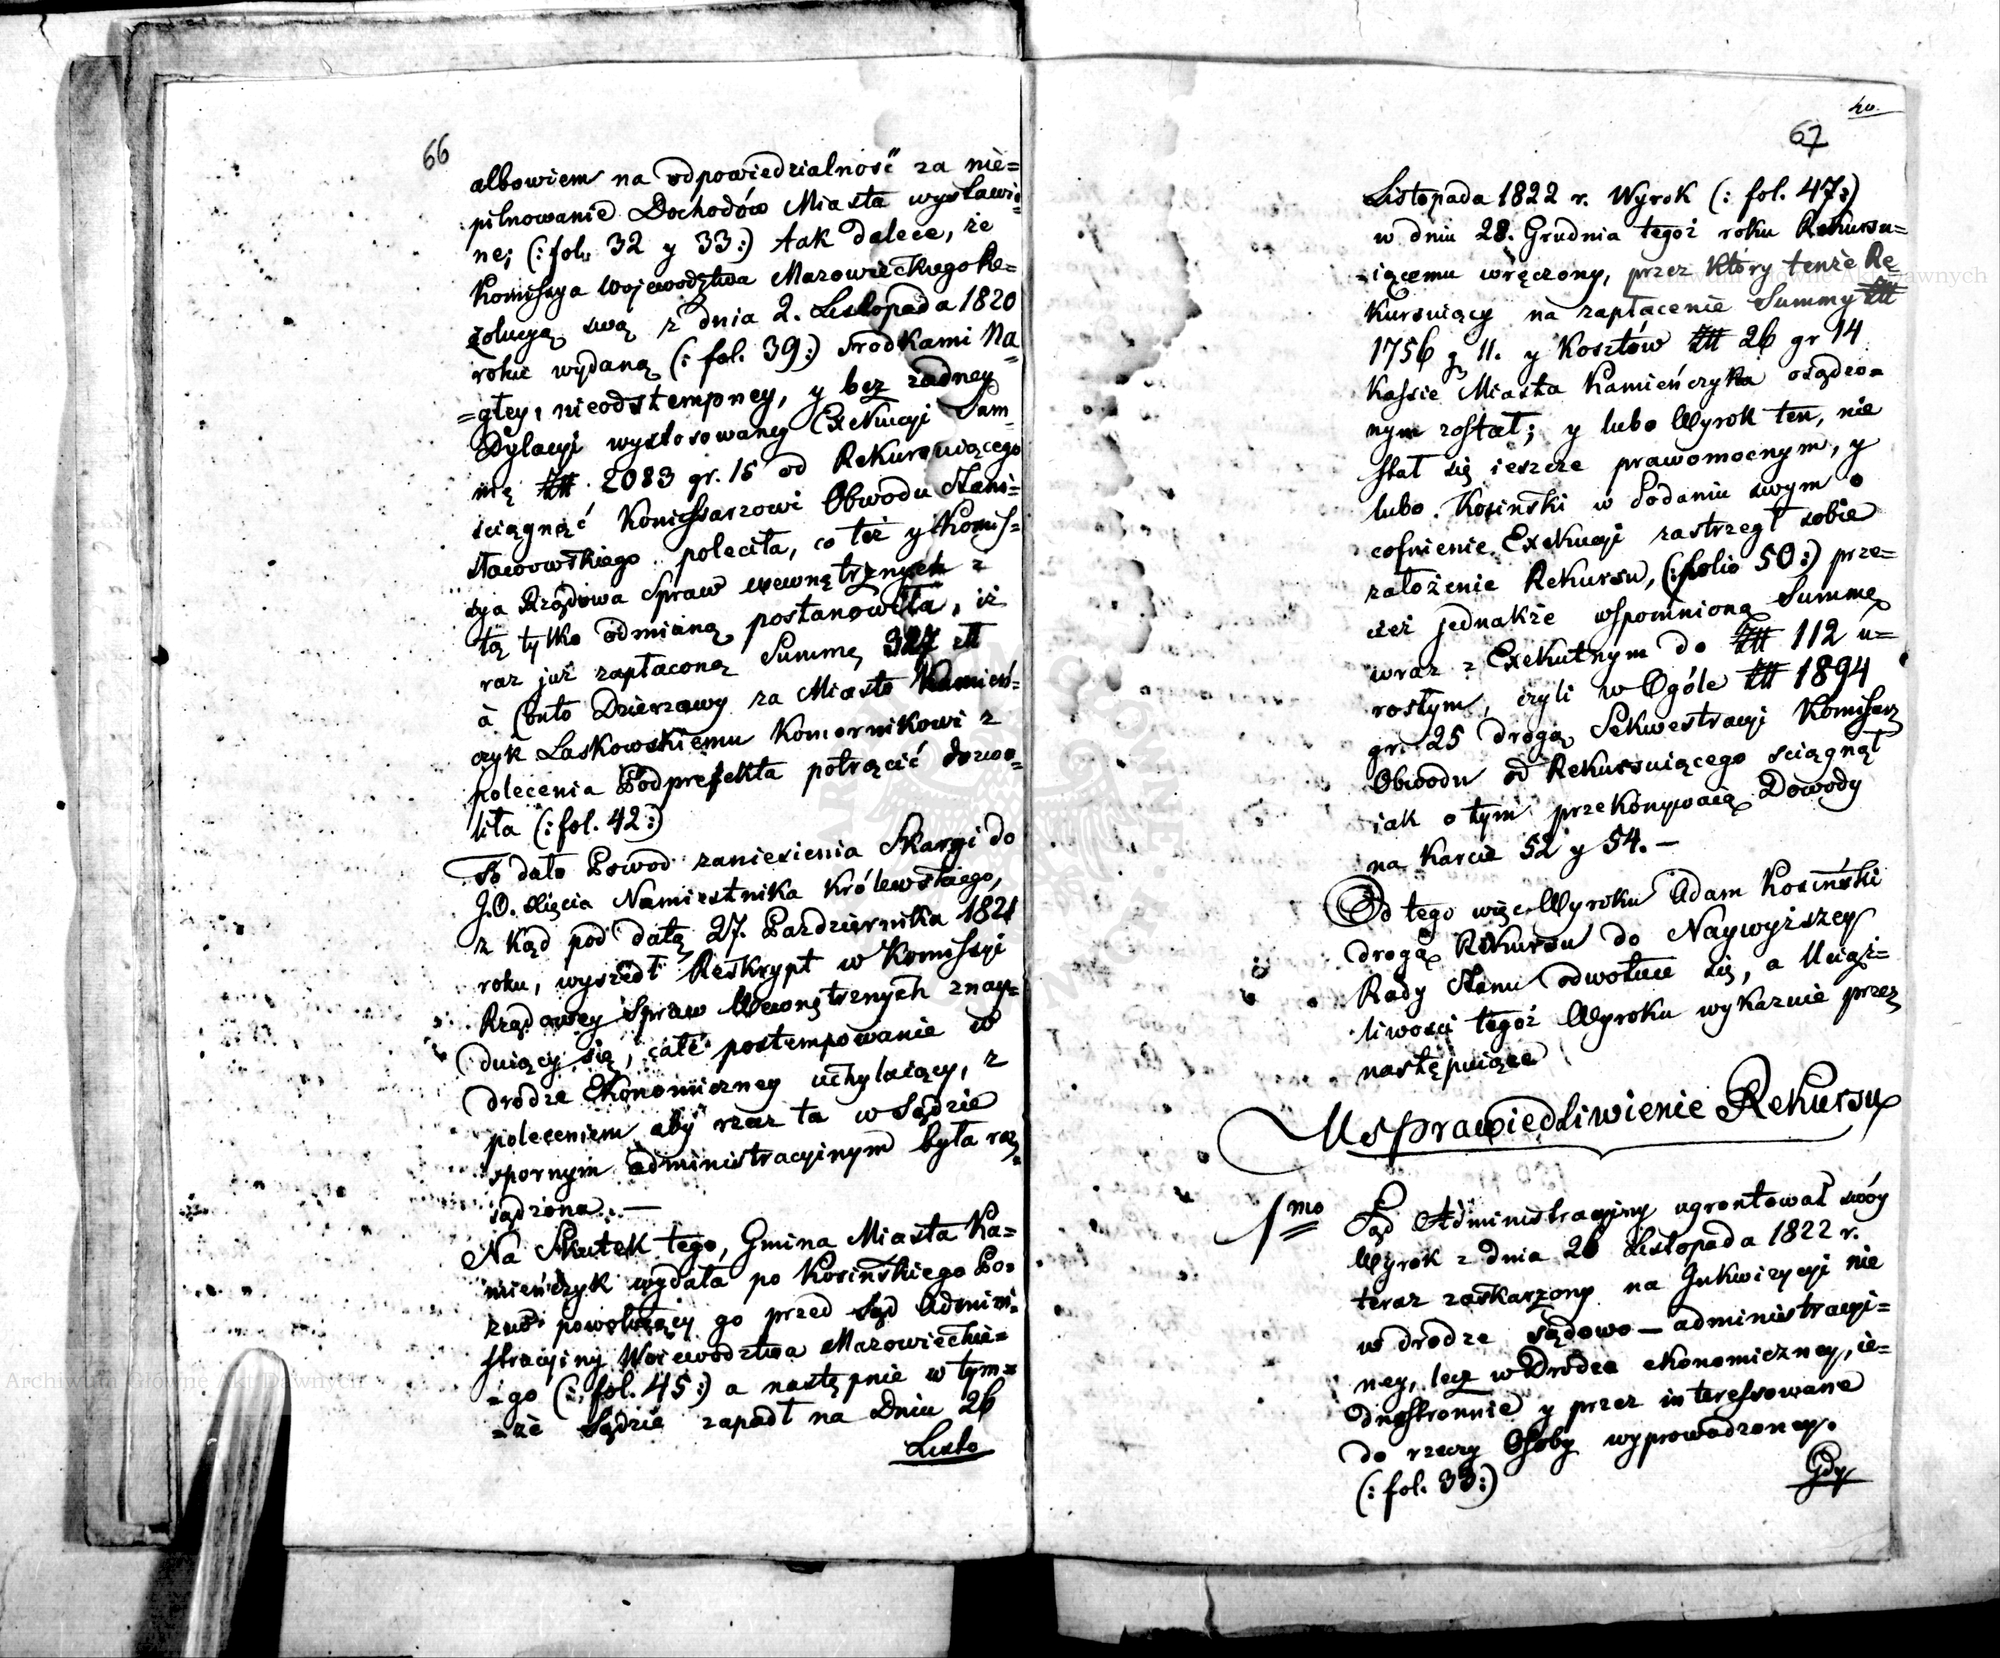 66
albowiem na odpowiedzialność za nie=
pilnowanie Dochodów Miasta wystawio=
ney (: fol. 32 y 33:) tak dalece, że
Kommissya Województwa Mazowieckiego Re=
zolucyą swą z dnia 2. Listopada 1820
roku wydaną (: fol. 39:) srodkami Na=
=głey, nieodstempney, y bez zadney
Dylacyi wystosowaney Exekucyi Sum=
mę złł 2083 gr. 15 od Rekurruiącego
sciągnąć Kommissarzowi Obwodu Stani=
sławowskiego poleciła, co też y Kommis=
sya Rządowa Spraw wewnętrznych z
tą tylko odmianą postanowiła, iż
raz już zapłaconą Summę 327 złł
à Conto Dzierzawy za Miasto Kamień=
czyk Laskowskiemu Komornikowi z
polecenia Podprefekta potrącić dozwo=
liła (: fol. 42:)
To dało Powod zaniesienia Skargi do
J.O. Xięcia Namiestnika Królewskiego,
z kąd pod datą 27. Pazdziernika 1821
roku, wyszedł Reskrypt w Kommissyi
Rządowey Spraw Wewnętrznych znay=
duiący się, całe postempowanie w
drodze Ekonomiczney uchylaiący, z
poleceniem aby rzecz ta w Sądzie
spornym administracyinym była roz=
sądzona. —
Na Skutek tego, Gmina Miasta Ka=
mieńczyk wydała po Kosińskiego Po=
zew powołuiący go przed Sąd Admini=
stracyiny Województwa Mazowieckie=
=go (: fol. 45:) a następnie w tym=
=że Sądzie zapadł na Dniu 26
Listo
40.
67
Listopada 1822 r. Wyrok (: fol. 47:)
w dniu 28. Grudnia tegoż roku Rekursu=
=iącemu wręczony, przez który tenże Re=
kursuiący na zapłacenie Summy złł
1756 g 11. y Kosztów złł 26 gr 14
Kassie Miasta Kamieńczyka osądzo=
nym został; y lubo Wyrok ten, nie
stał się ieszcze prawomocnym, y
lubo Kosiński w Podaniu swym o
cofnienie Exekucyi zastrzegł sobie
założenie Rekursu, (: folio 50:) prze=
cież jednakże wspomnioną Summę
wraz z Exekutnym do złł 112 u=
rosłym, czyli w Ogóle złł 1894
gr. 25 drogą Sekwestracyi Kommissarz
Obwodu od Rekursuiącego sciągnął
iak o tym przekonywaią Dowody
na Karcie 52 y 54. —
Od tego więc Wyroku Adam Kosiński
drogą Rekursu do Naywyższey
Rady Stanu odwołuie się, a Uciąż=
liwości tegoż Wyroku wykazuie przez
następuiące
Usprawiedliwienie Rekursu
1mo Sąd Administracyiny ugrontował swóy
Wyrok z dnia 26 Listopada 1822 r.
teraz zaskarzony na Jnkwizycyi nie
w drodze sądowo — administracyi=
ney, lecz w Drodze ekonomiczney, ie=
dnostronnie y przez interessowane
do rzeczy Osoby wyprowadzoney.
(: fol. 33:)
Gdy
Archiwum Główne Akt Dawnych